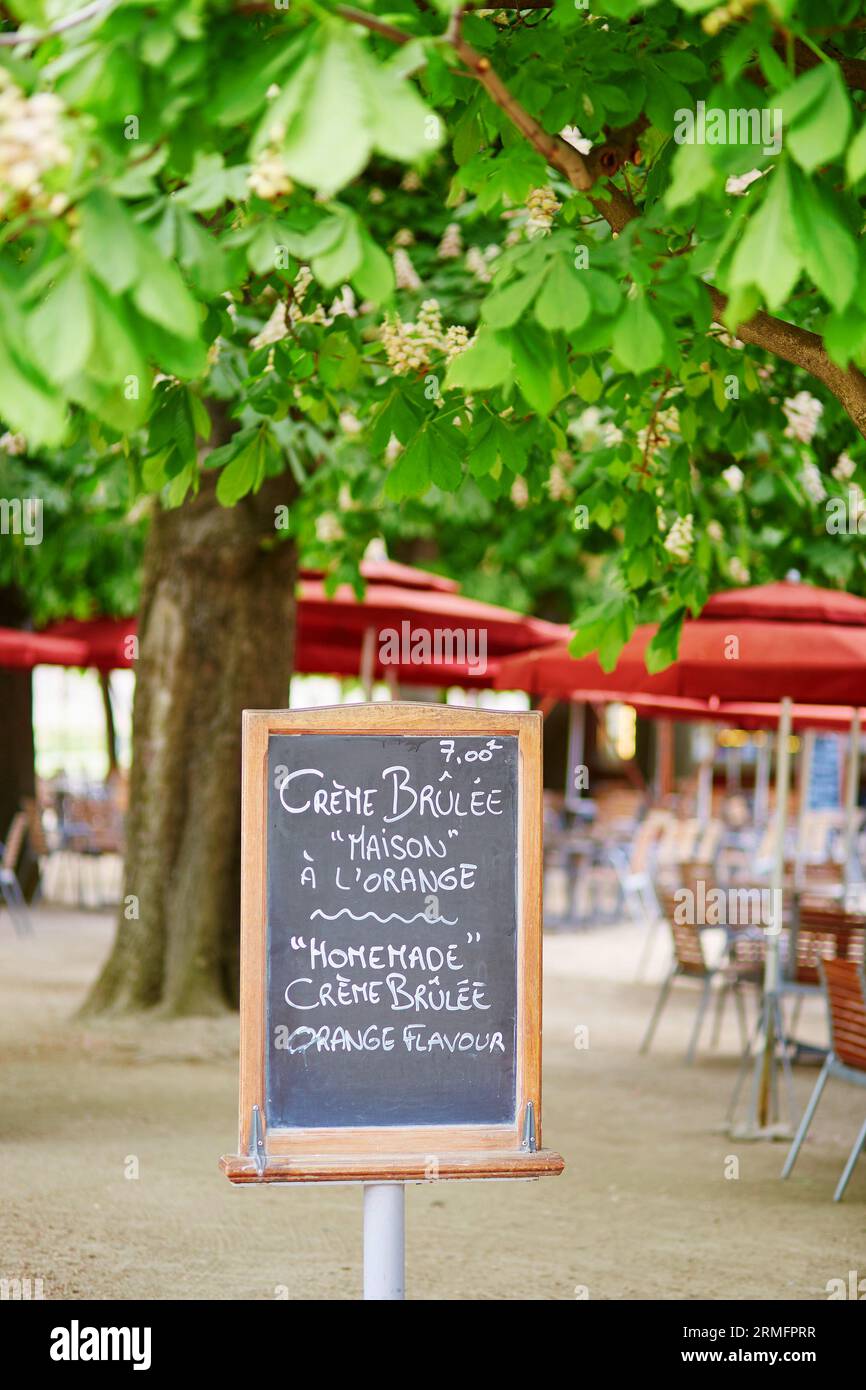 7,00€
CRÈME BRÛLÉE
"MAISON"
À L'ORANGE
"HOMEMADE"
CRÈME BRÛLÉE
ORANGE FLAVOUR
alamy
Image ID: 2RMFPRR
www.alamy.com